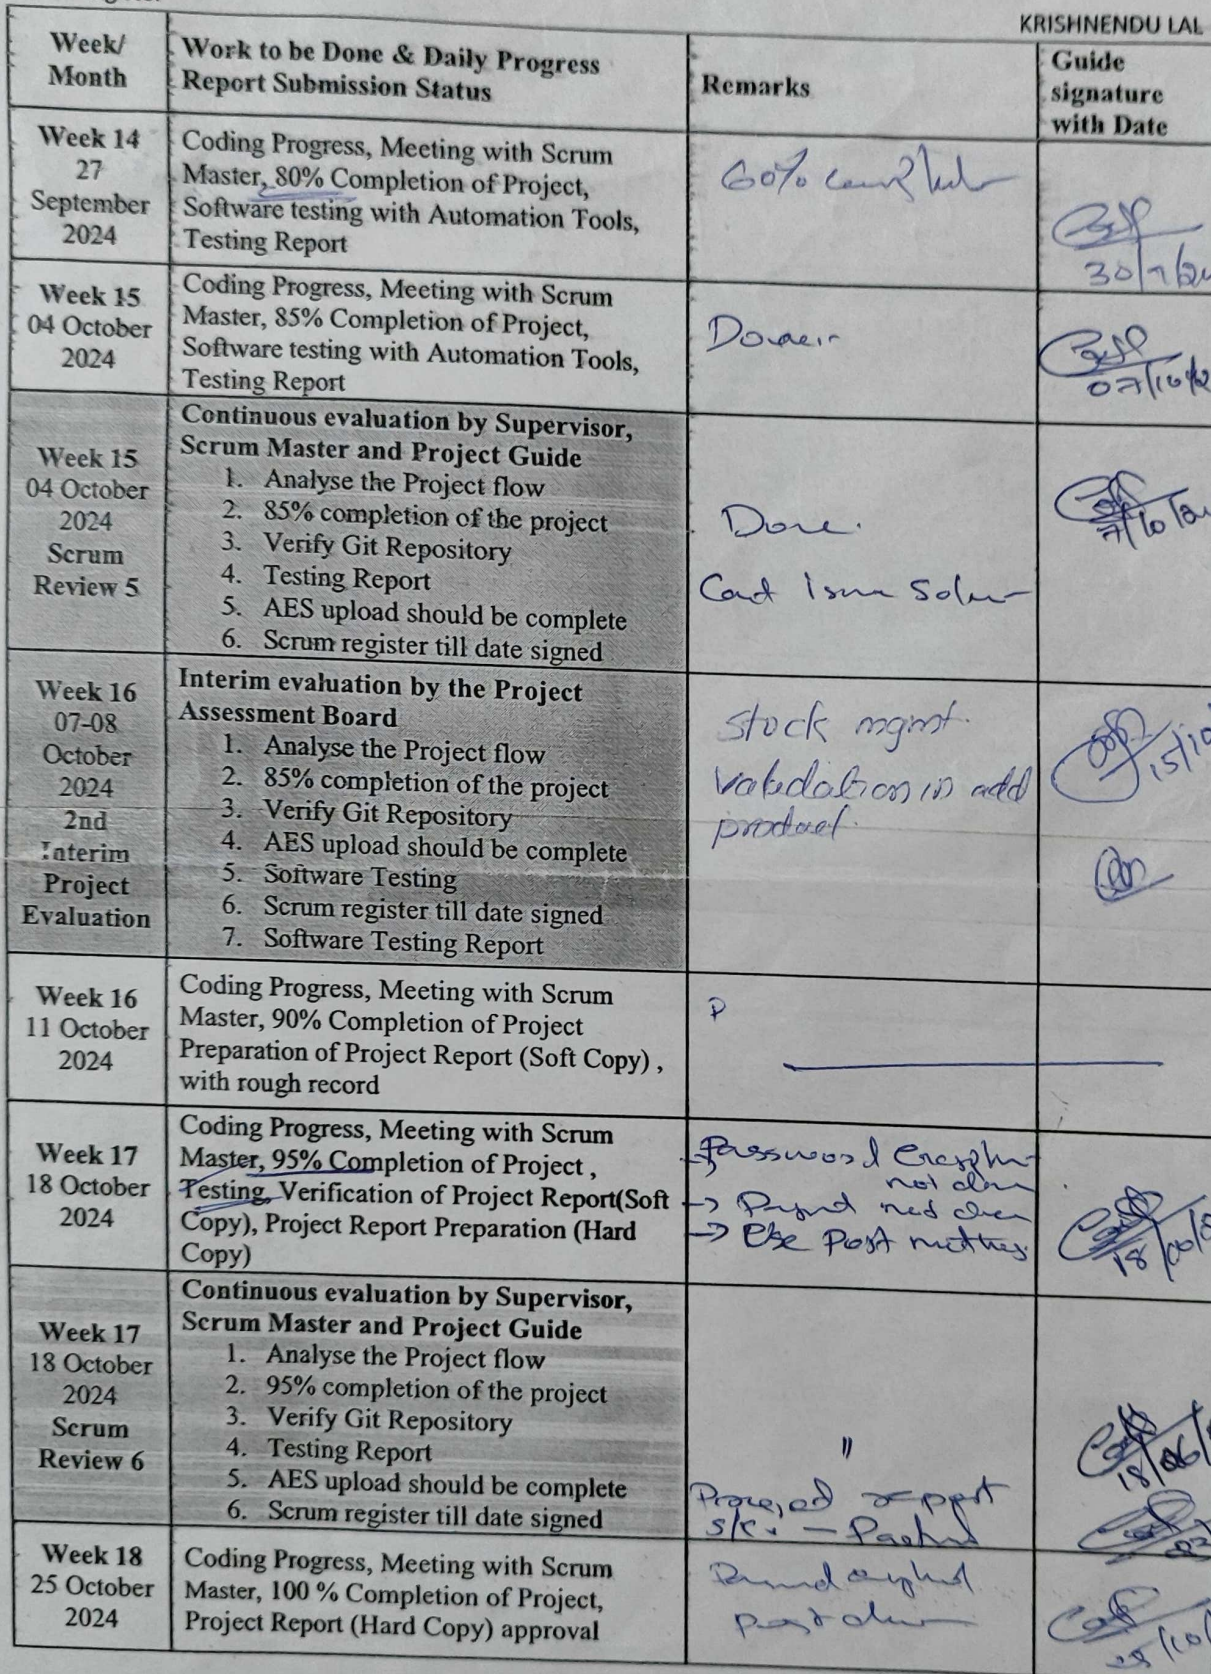 KRISHNENDU LAL
Week/
Month
Work to be Done & Daily Progress
Report Submission Status
Remarks
Guide
signature
with Date
Week 14
27
September
2024
Coding Progress, Meeting with Scrum
Master, 80% Completion of Project,
Software testing with Automation Tools,
Testing Report
60%
Week 15
04 October
2024
Coding Progress, Meeting with Scrum
Master, 85% Completion of Project,
Software testing with Automation Tools,
Testing Report
07/10
Week 15
04 October
2024
Scrum
Review 5
Continuous evaluation by Supervisor,
Scrum Master and Project Guide
1. Analyse the Project flow
2. 85% completion of the project
3. Verify Git Repository
4. Testing Report
5. AES upload should be complete
6. Scrum register till date signed
Done.
7/10
Week 16
07-08
October
2024
2nd
Interim
Project
Evaluation
Interim evaluation by the Project
Assessment Board
1. Analyse the Project flow
2. 85% completion of the project
3. Verify Git Repository
4. AES upload should be complete
5. Software Testing
6. Scrum register till date signed
7. Software Testing Report
Stock mgmt.
validation in add
product.
15/10
Week 16
11 October
2024
Coding Progress, Meeting with Scrum
Master, 90% Completion of Project
Preparation of Project Report (Soft Copy) ,
with rough record
Week 17
18 October
2024
Coding Progress, Meeting with Scrum
Master, 95% Completion of Project ,
Testing, Verification of Project Report(Soft
Copy), Project Report Preparation (Hard
Copy)
Password
not
Post
Week 17
18 October
2024
Scrum
Review 6
Continuous evaluation by Supervisor,
Scrum Master and Project Guide
1. Analyse the Project flow
2. 95% completion of the project
3. Verify Git Repository
4. Testing Report
5. AES upload should be complete
6. Scrum register till date signed
"
report
Week 18
25 October
2024
Coding Progress, Meeting with Scrum
Master, 100 % Completion of Project,
Project Report (Hard Copy) approval